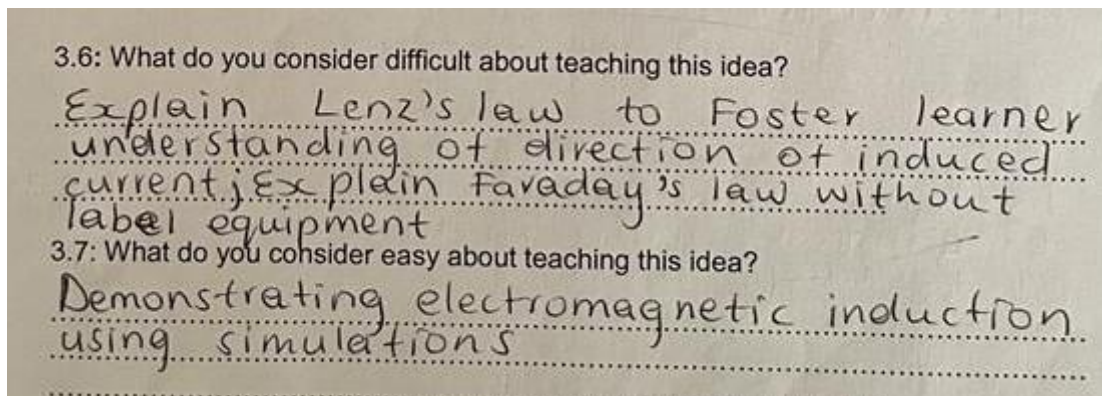 3.6: What do you consider difficult about teaching this idea?
Explain Lenz's law to Foster learner
understanding of direction of induced
current; Explain Faraday's law without
label equipment
3.7: What do you consider easy about teaching this idea?
Demonstrating electromagnetic induction
using simulations